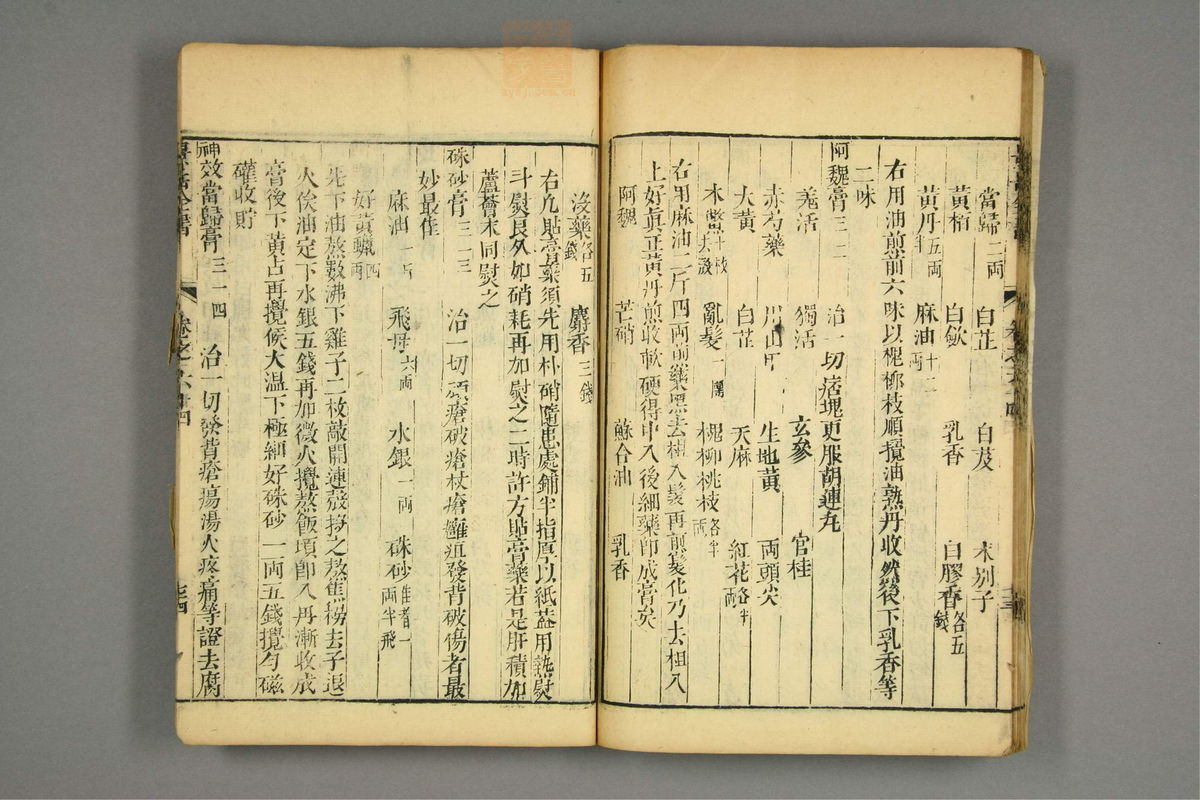 當歸二両 白芷 白芨 木別子
黃栢 白歛 乳香 白膠香各五錢
黃丹五両半 麻油十二両
右用油煎前六味以槐柳枝順攪油熟丹收然後下乳香等
二味
阿魏膏三一二 治一切痞塊更服胡連丸
羗活 獨活 玄參 官桂
赤芍藥 川山甲 生地黃 両頭尖
大黃 白芷 天麻 紅花各半両
木鱉十枚去殼 亂髮一團 槐柳桃枝各半両
右用麻油二斤四両煎藥黑去柤入髮再煎髮化乃去柤入
上好眞正黃丹煎收軟硬得中入後細藥即成膏矣
阿魏 芒硝 蘇合油 乳香
沒藥各五錢 麝香三錢
右凡貼膏藥須先用朴硝隨患處鋪半指厚以紙蓋用熱熨
斗熨良久如硝耗再加熨之二時許方貼膏藥若是肝積加
蘆薈末同熨之
硃砂膏三一三 治一切頑瘡破瘡杖瘡癰疽發背破傷者最
妙最佳
麻油一斤 飛丹六両 水銀一両 硃砂佳者一両半飛
好黃蠟四両
先下油熬數沸下雞子二枚敲開連殼投之熬焦撈去子退
火俟油定下水銀五錢再加微火攪熬飯頃即入丹漸收成
膏後下黃占再攪候大温下極細好硃砂一両五錢攪匀磁
礶收貯
神效當歸膏三一四 治一切發背瘡瘍湯火疼痛等證去腐
景岳全書 卷之六十四 七四